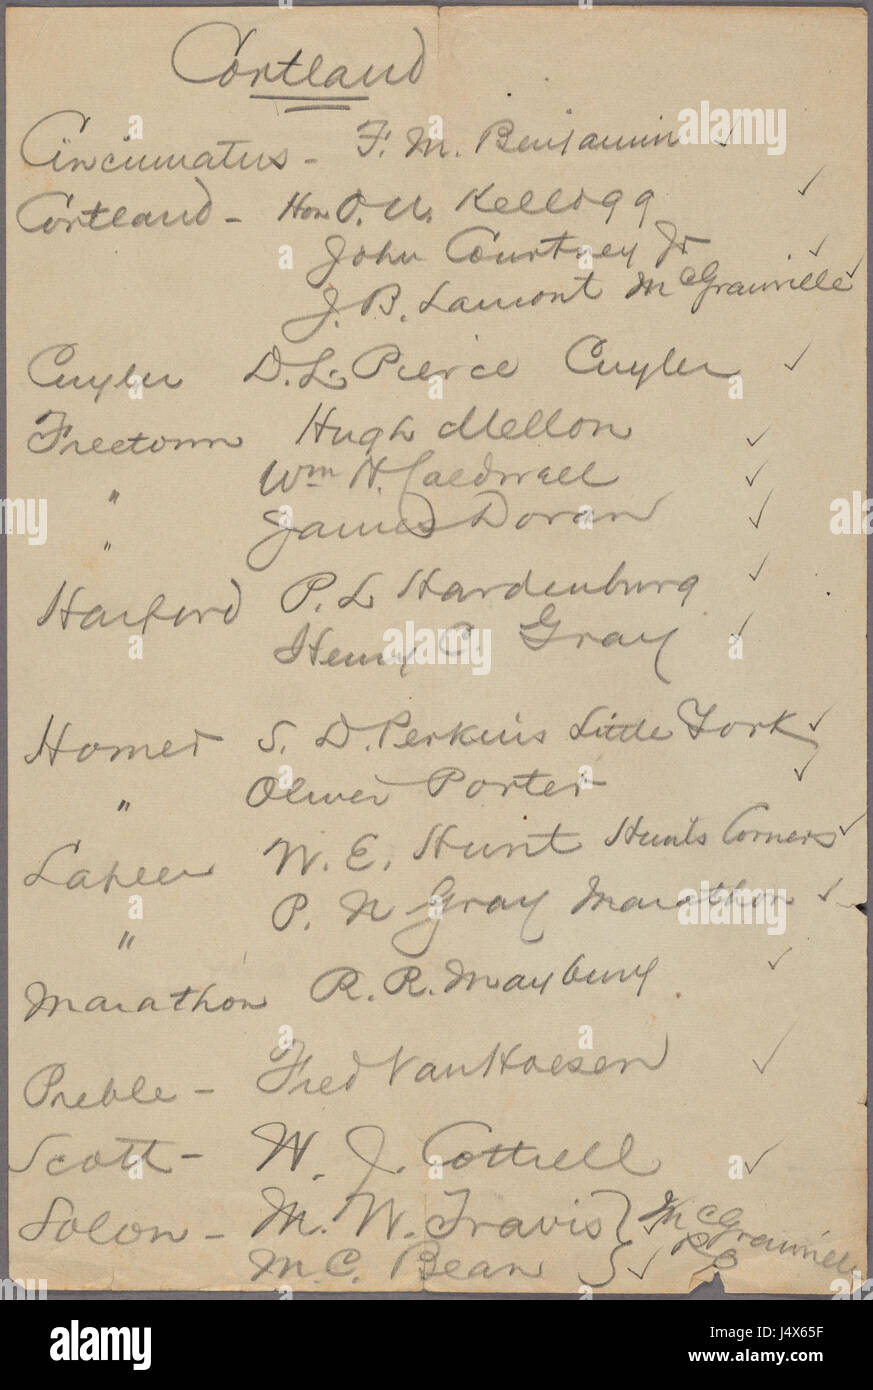 Cortland
Cincinnatus - F. M. Benjamin ✓
Cortland - Hon O. U. Kellogg ✓
John Courtney Jr ✓
J. B. Lamont McGrawville ✓
Cuyler D. L. Pierce Cuyler ✓
Freetown Hugh Mellon ✓
" Wm H. Caldwell ✓
" James Doran ✓
Harford P. L Hardenburg ✓
Henry C. Gray ✓
Homer S. D. Perkins Little York ✓
" Oliver Porter ✓
Lapeer W. E. Hunt Hunts Corners ✓
" P. N Gray Marathon ✓
Marathon R. R. Maybury. ✓
Preble - Fred VanHoesen ✓
Scott - W. J. Cottrell ✓
Solon - M. W. Travis } ✓ McGrawville
M. C. Bean } ✓
alamy stock photo
J4X65F
www.alamy.com